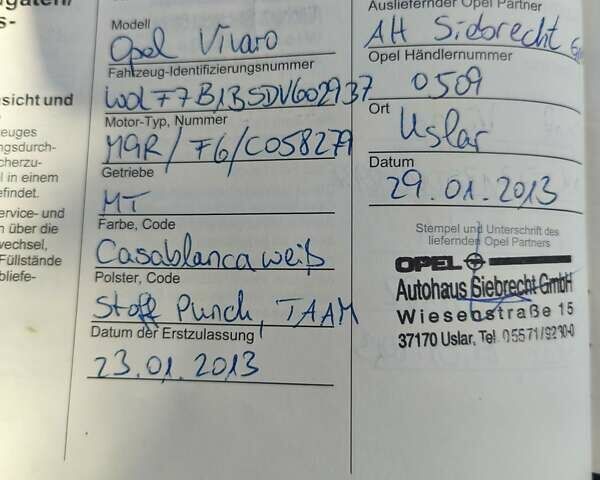 s-
sicht und
zeuges
ngsdurch-
cherzu-
l in einem
efindet.
ervice- und
n über die
wechsel,
Füllstände
bliefe-
Modell
Opel Vivaro
Fahrzeug-Identifizierungsnummer
W0LF7B1BSDV602937
Motor-Typ, Nummer
M9R / F6 / C058279
Getriebe
MT
Farbe, Code
Casablancaweiß
Polster, Code
Stoff Punch, TAAM
Datum der Erstzulassung
23.01.2013
Ausliefernder Opel Partner
AH Siebrecht
Opel Händlernummer
0509
Ort
Uslar
Datum
29.01.2013
Stempel und Unterschrift des
liefernden Opel Partners
OPEL
Autohaus Siebrecht GmbH
Wiesenstraße 15
37170 Uslar, Tel. 05571/9230-0